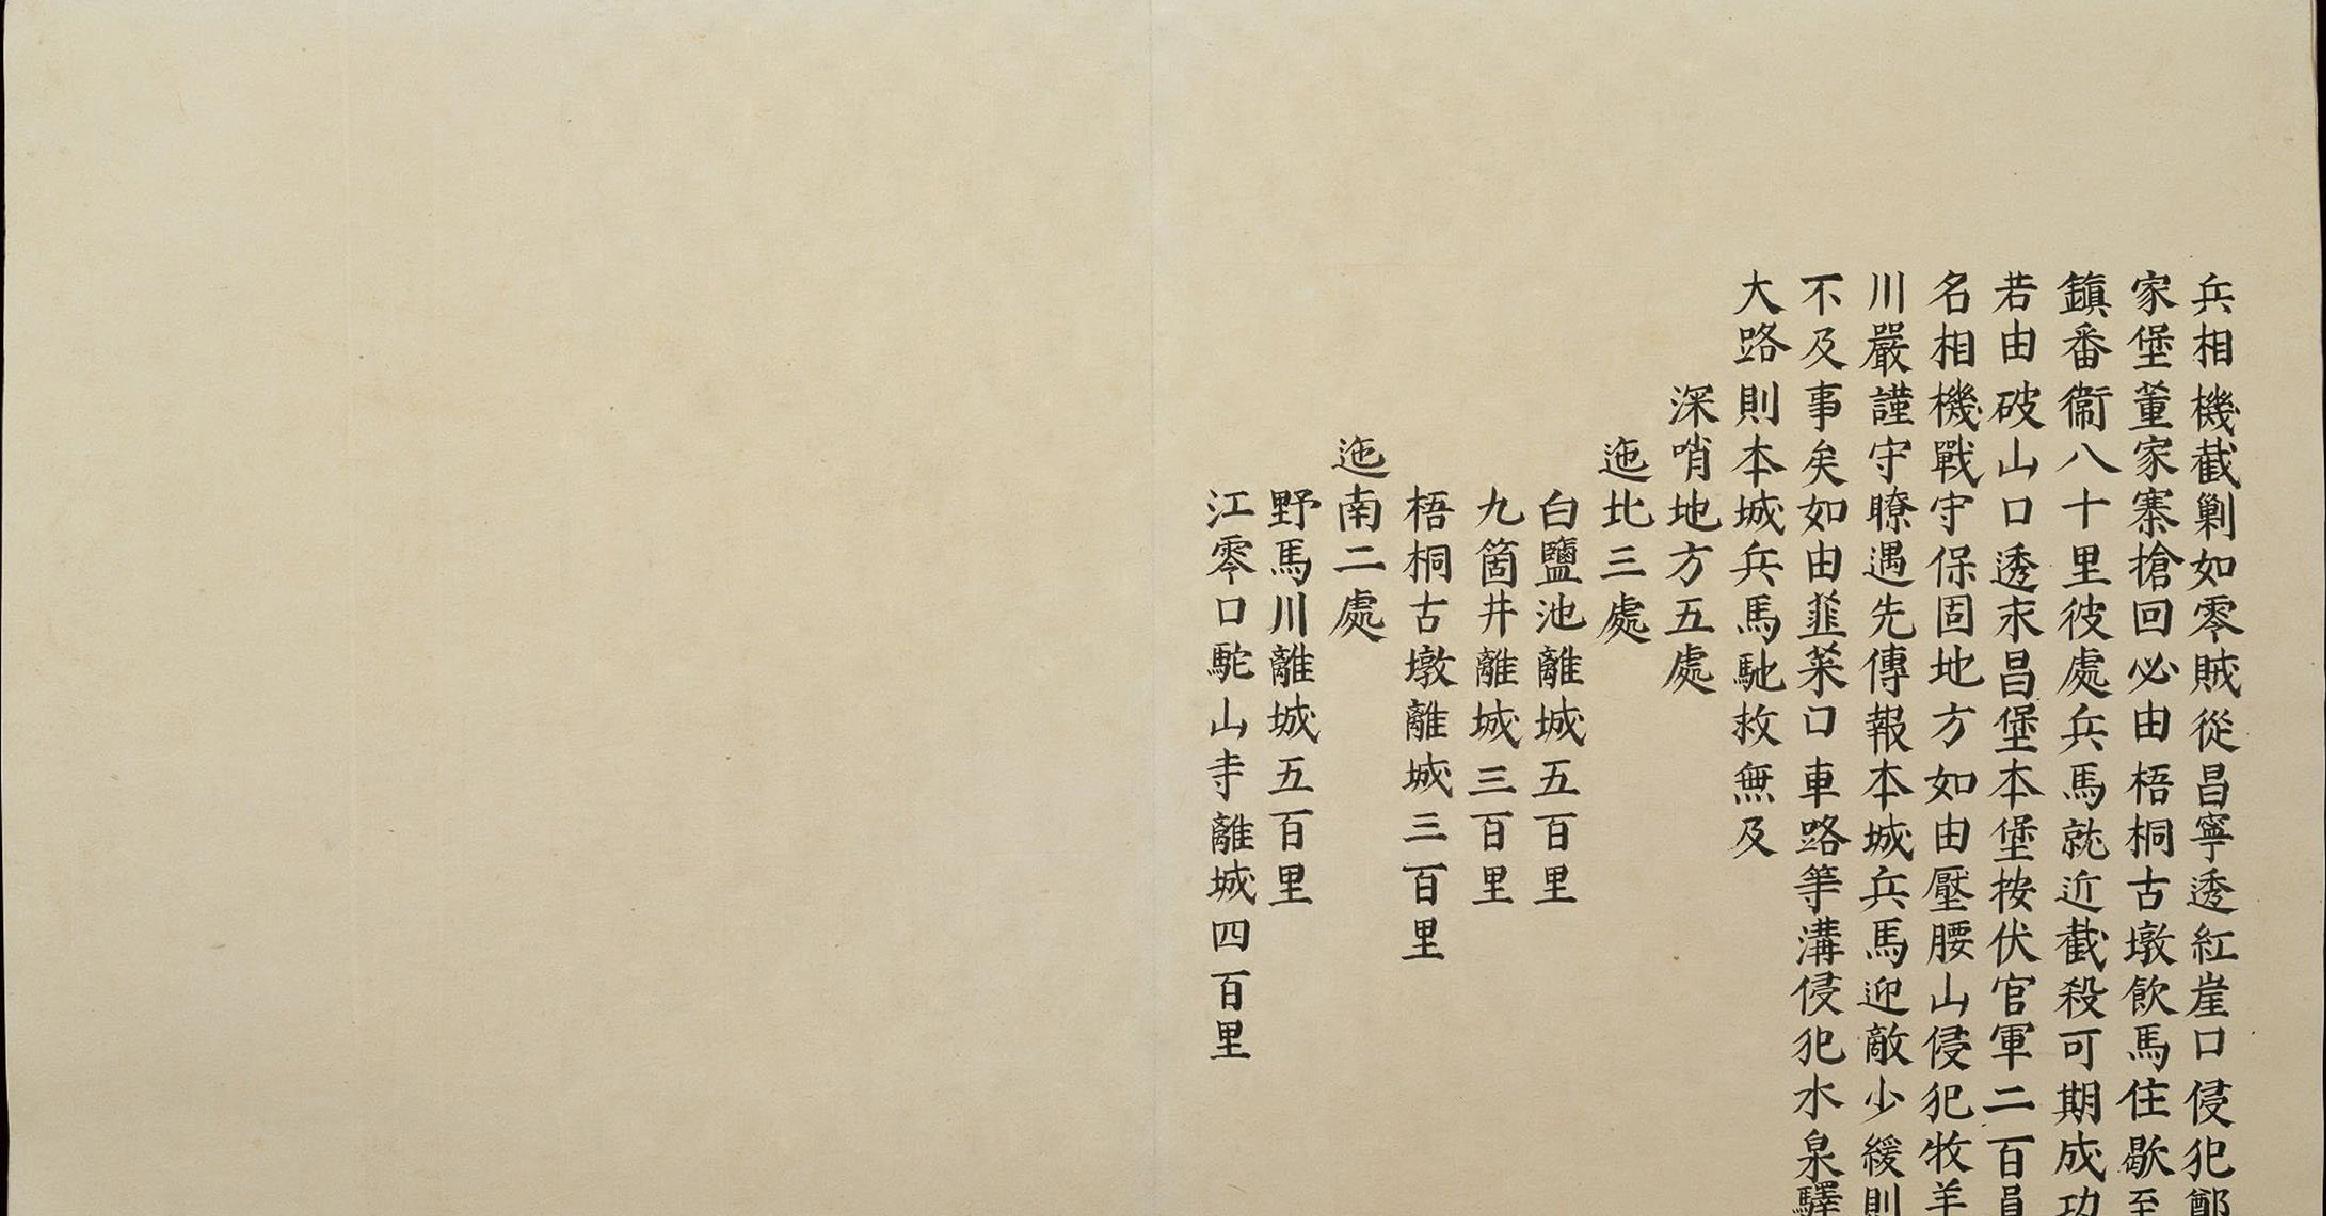 兵相機截剿如零賊從昌寧透紅崖口侵犯鄭
家堡董家寨搶回必由梧桐古墩飲馬住歇至
鎮番衞八十里彼處兵馬就近截殺可期成功
若由破山口透永昌堡本堡按伏官軍二百員
名相機戰守保固地方如由壓腰山侵犯牧羊
川嚴謹守瞭遇先傳報本城兵馬迎敵少緩則
不及事矣如由韮菜口車路等溝侵犯水泉驛
大路則本城兵馬馳救無及
深哨地方五處
迤北三處
白鹽池離城五百里
九箇井離城三百里
梧桐古墩離城三百里
迤南二處
野馬川離城五百里
江零口駝山寺離城四百里